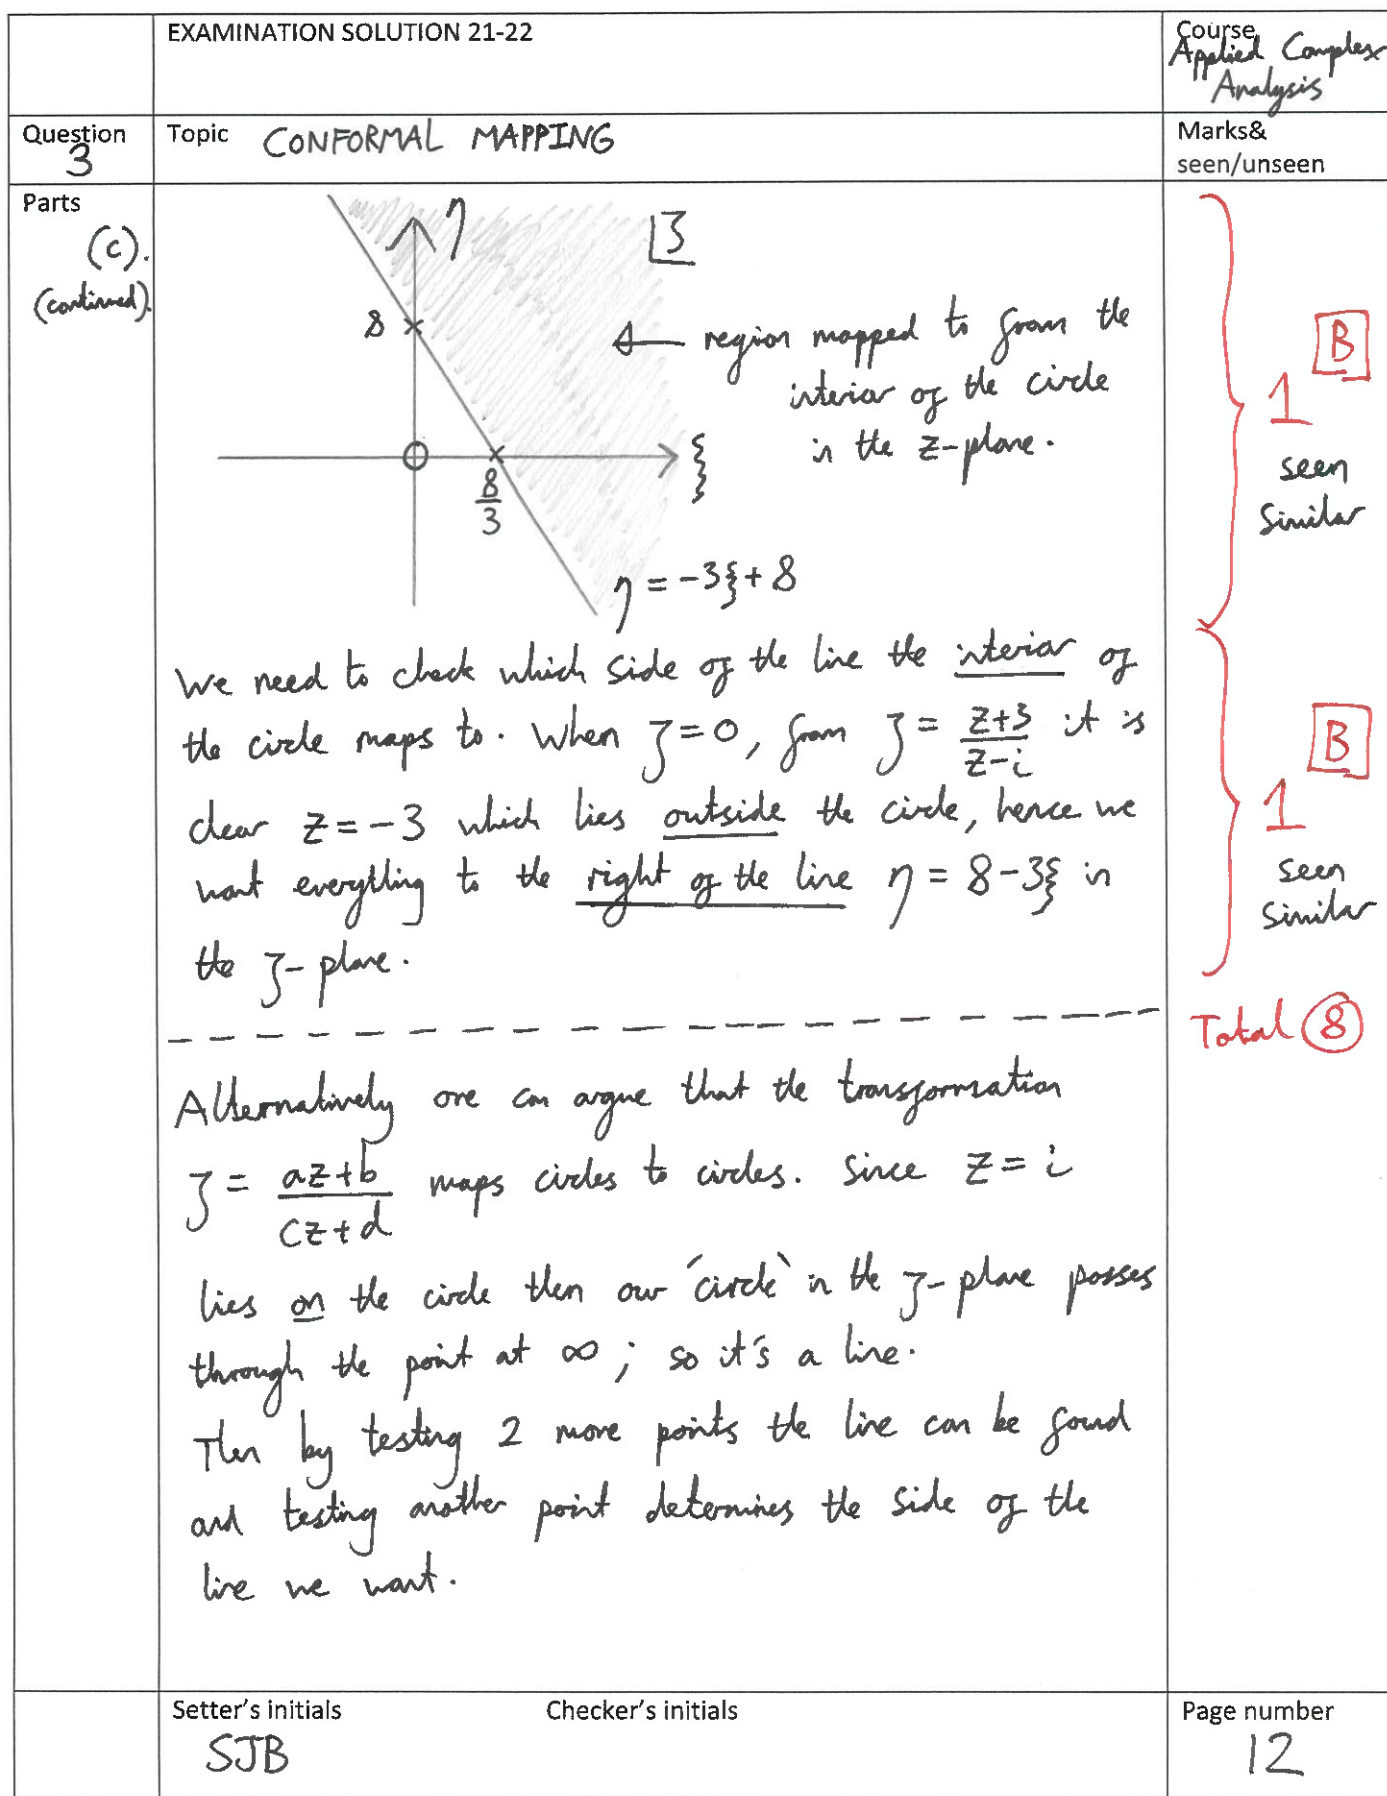 EXAMINATION SOLUTION 21-22
Course
Applied Complex
Analysis
Question
3
Topic CONFORMAL MAPPING
Marks&
seen/unseen
Parts
(c).
(continued).
η
ζ
8
region mapped to from the
interior of the circle
in the z-plane.
O
8/3
ξ
η = -3ξ + 8
B
1
seen
similar
We need to check which side of the line the interior of
the circle maps to. When ζ = 0, from ζ = (z+3)/(z-i) it is
clear z = -3 which lies outside the circle, hence we
want everything to the right of the line η = 8-3ξ in
the ζ-plane.
B
1
seen
similar
Total 8
Alternatively one can argue that the transformation
ζ = (az+b)/(cz+d) maps circles to circles. Since z = i
lies on the circle then our 'circle' in the ζ-plane passes
through the point at ∞; so it's a line.
Then by testing 2 more points the line can be found
and testing another point determines the side of the
line we want.
Setter's initials
SJB
Checker's initials
Page number
12